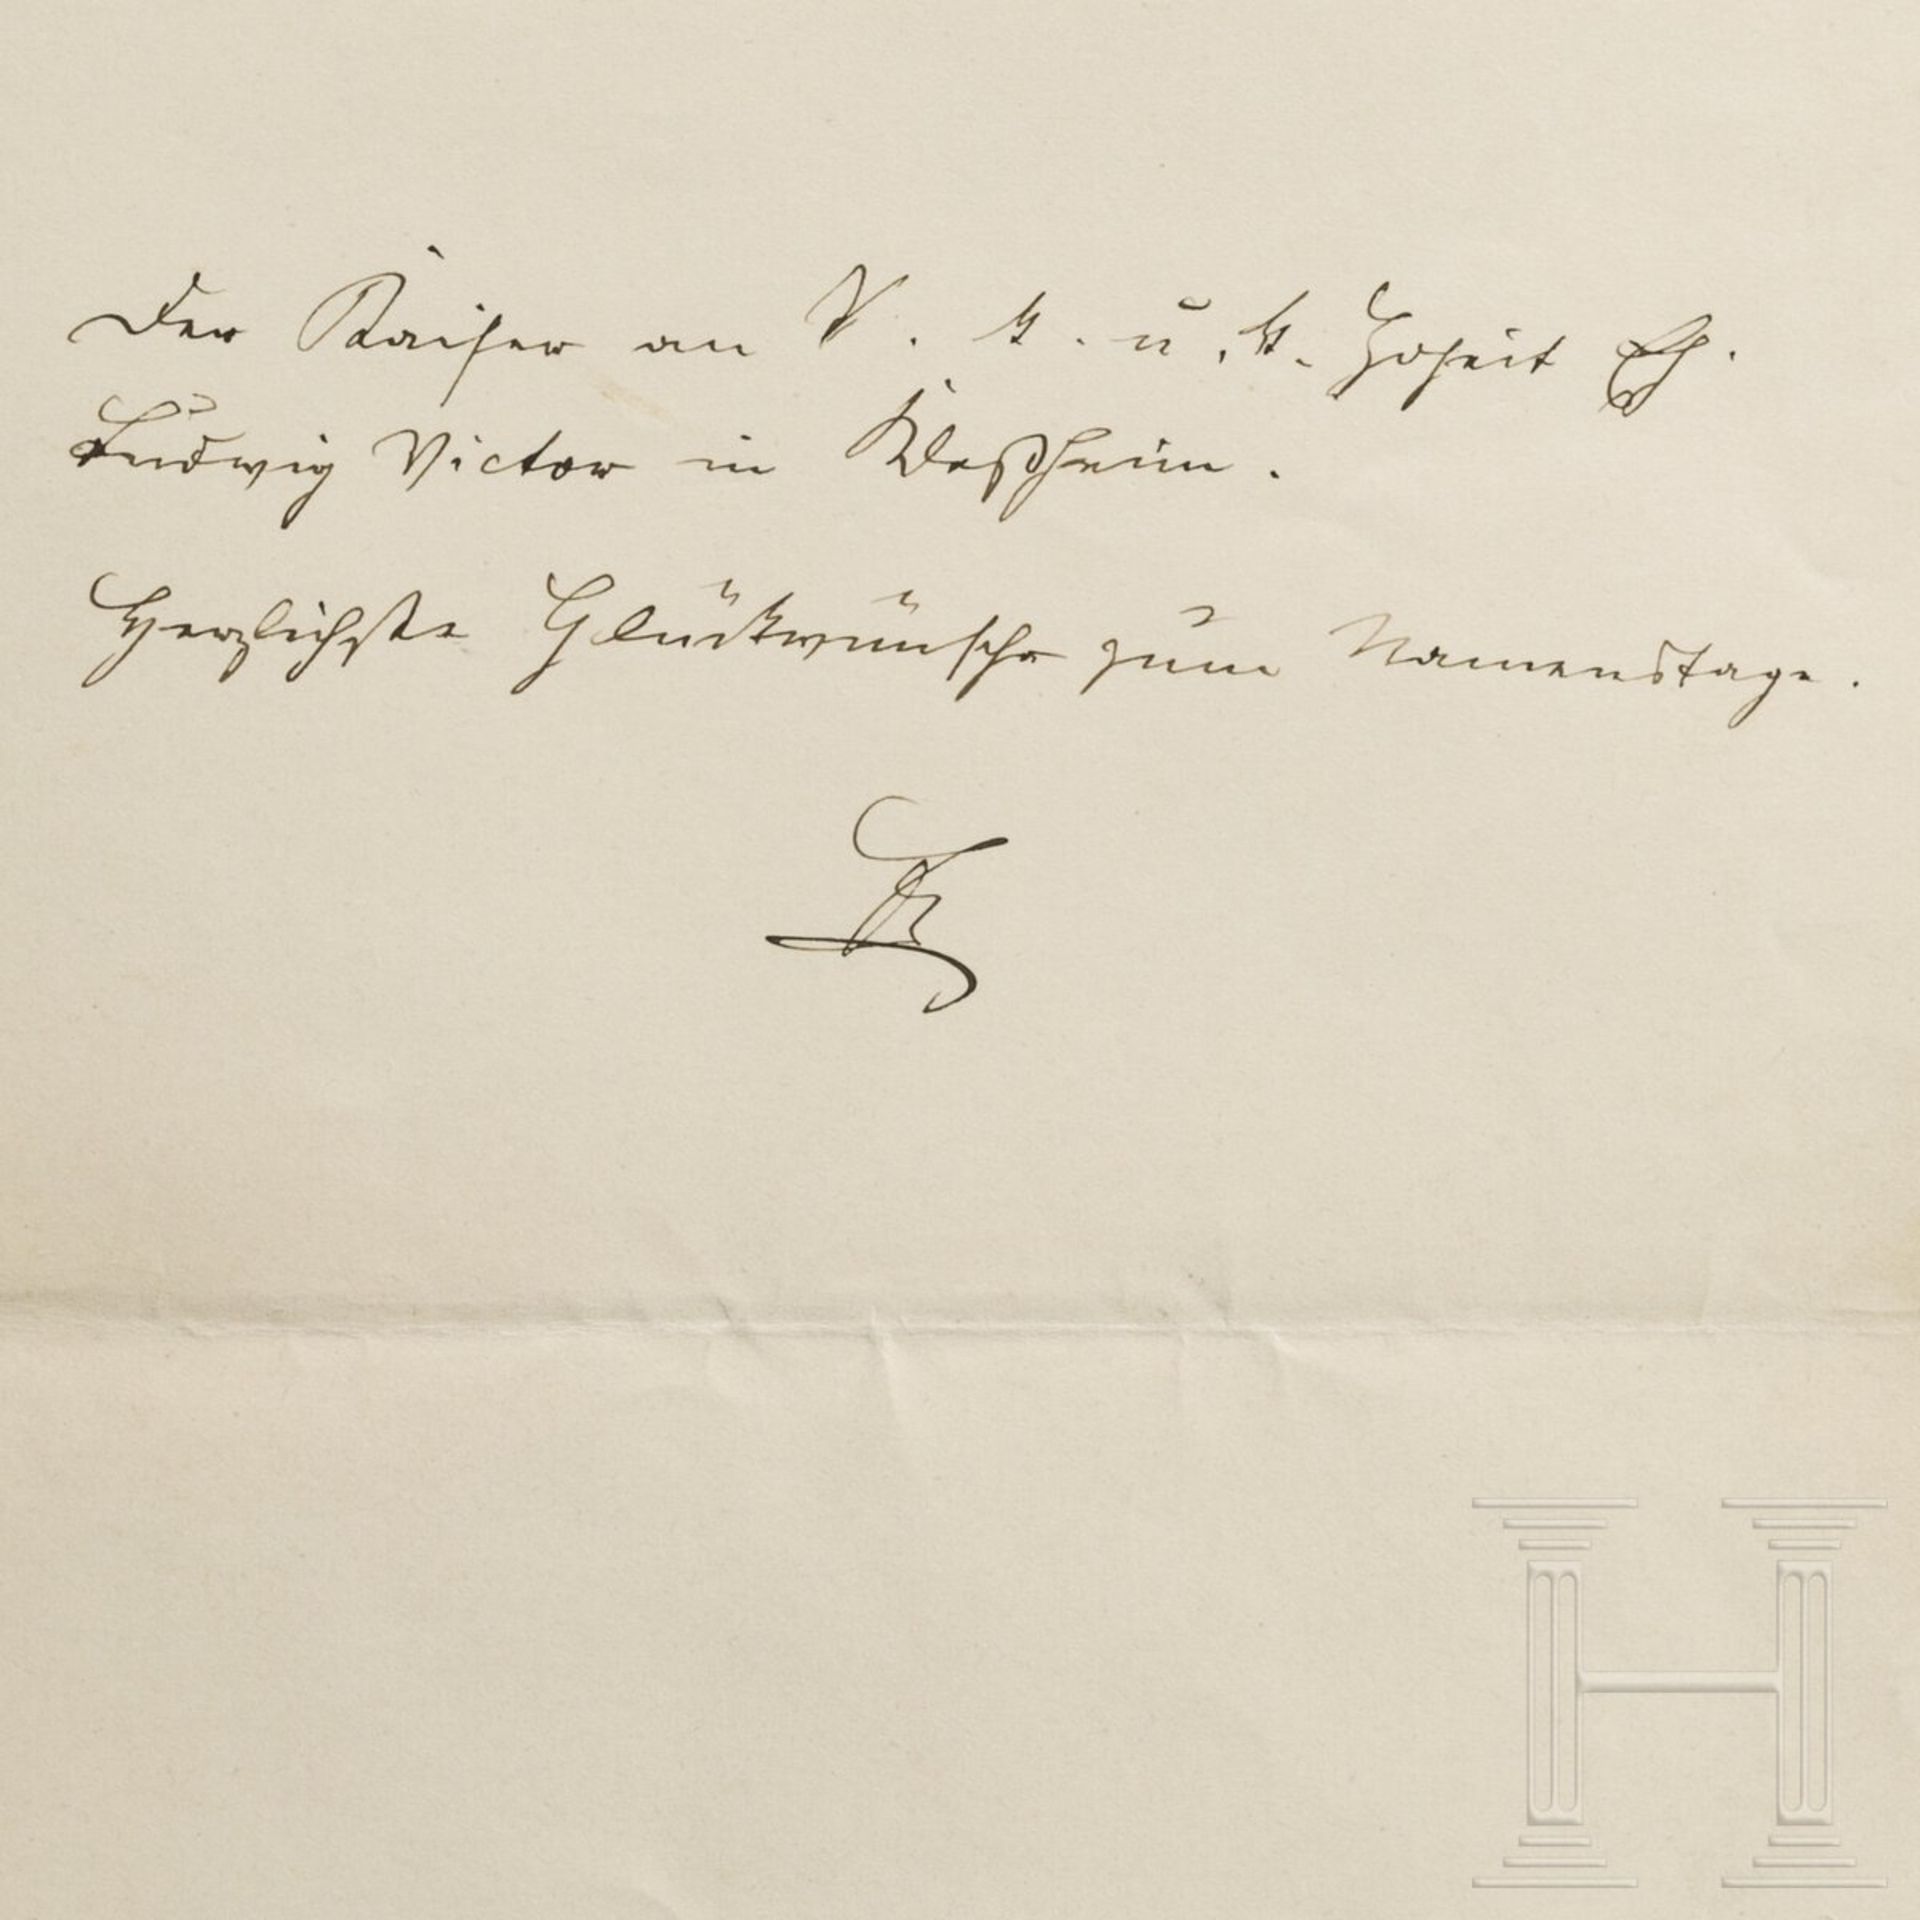 Der Kaiser an S. k. u. k. Hoheit Eh.
Ludwig Victor in Kleßheim.
Herzlichste Glückwünsche zum Namenstage.
H